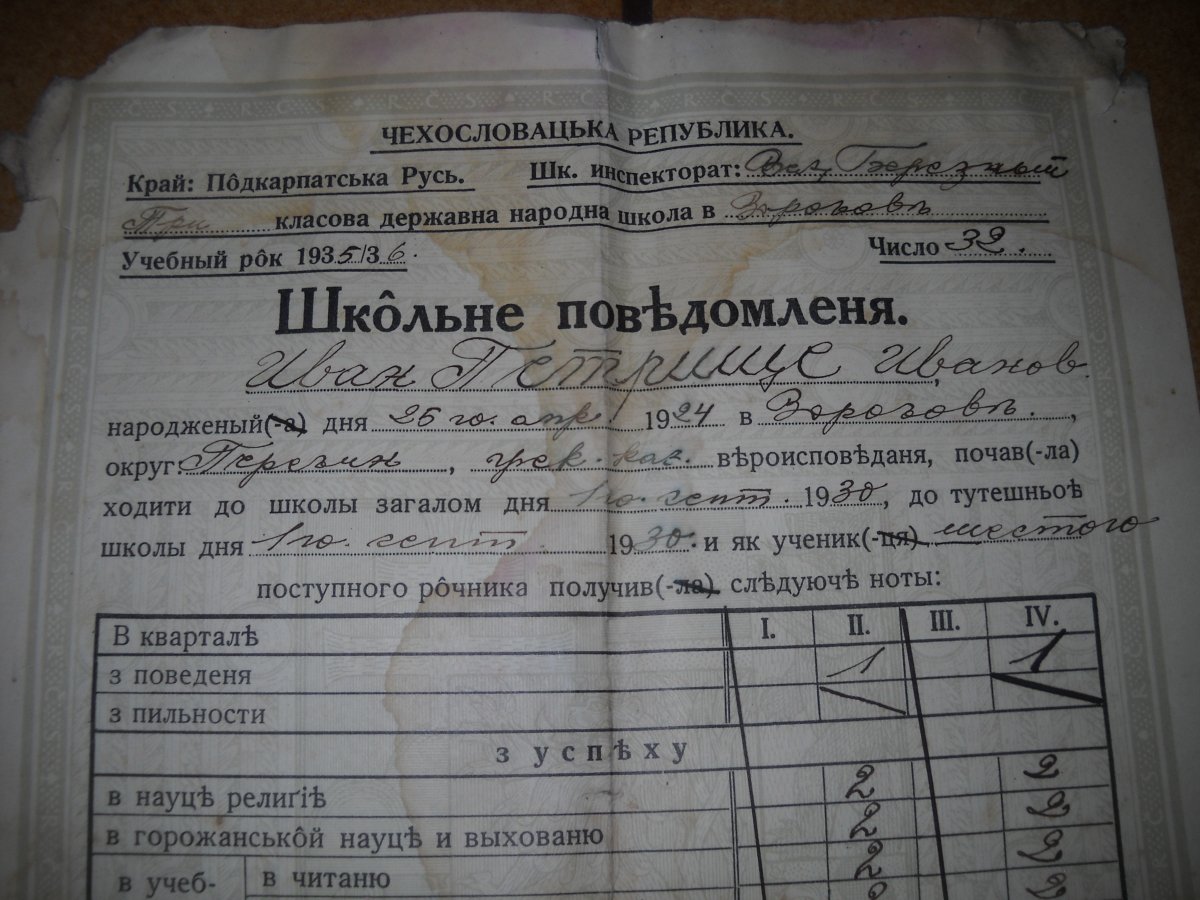 ЧЕХОСЛОВАЦЬКА РЕПУБЛИКА.
Край: Пôдкарпатська Русь. Шк. инспекторат: Вел. Березный
Три класова державна народна школа в
Учебный рôк 1935/36. Число 32.
Шкôльне повѣдомленя.
Иван Петрище Иванов.
народженый(-а) дня 25 го. апр. 1924 в
округ: Перечин, грек. кат. вѣроисповѣданя, почав(-ла)
ходити до школы загалом дня 1го. септ. 1930, до тутешньоѣ
школы дня 1го. септ. 1930. и як ученик(-ця) шестого
поступного рôчника получив(-ла) слѣдуючѣ ноты:
В кварталѣ I. II. III. IV.
з поведеня 1 1
з пильности
з успѣху
в науцѣ религіѣ 2 2
в горожанськôй науцѣ и выхованю 2 2
в учеб- в читаню 2 2